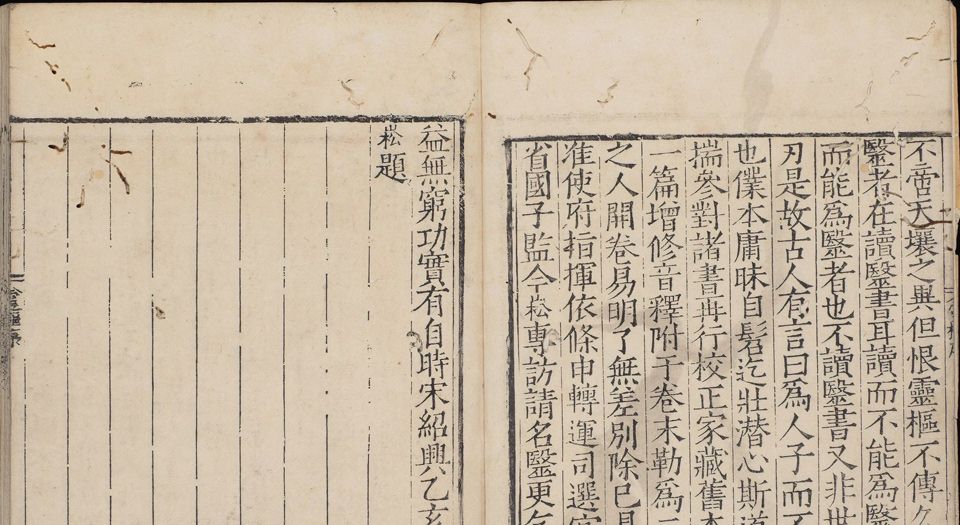 不啻天壤之異但恨靈樞不傳
醫者在讀醫書耳讀而不能爲醫
而能爲醫者也不讀醫書又非世
刃是故古人有言曰爲人子而不
也僕本庸昧自髫迄壯潛心斯道
揣參對諸書再行校正家藏舊本
一篇增修音釋附于卷末勒爲二
之人開卷易明了無差別除已具
准使府指揮依條申轉運司選官
省國子監今崧專訪請名醫更乞
益無窮功實有自時宋紹興乙亥
崧題